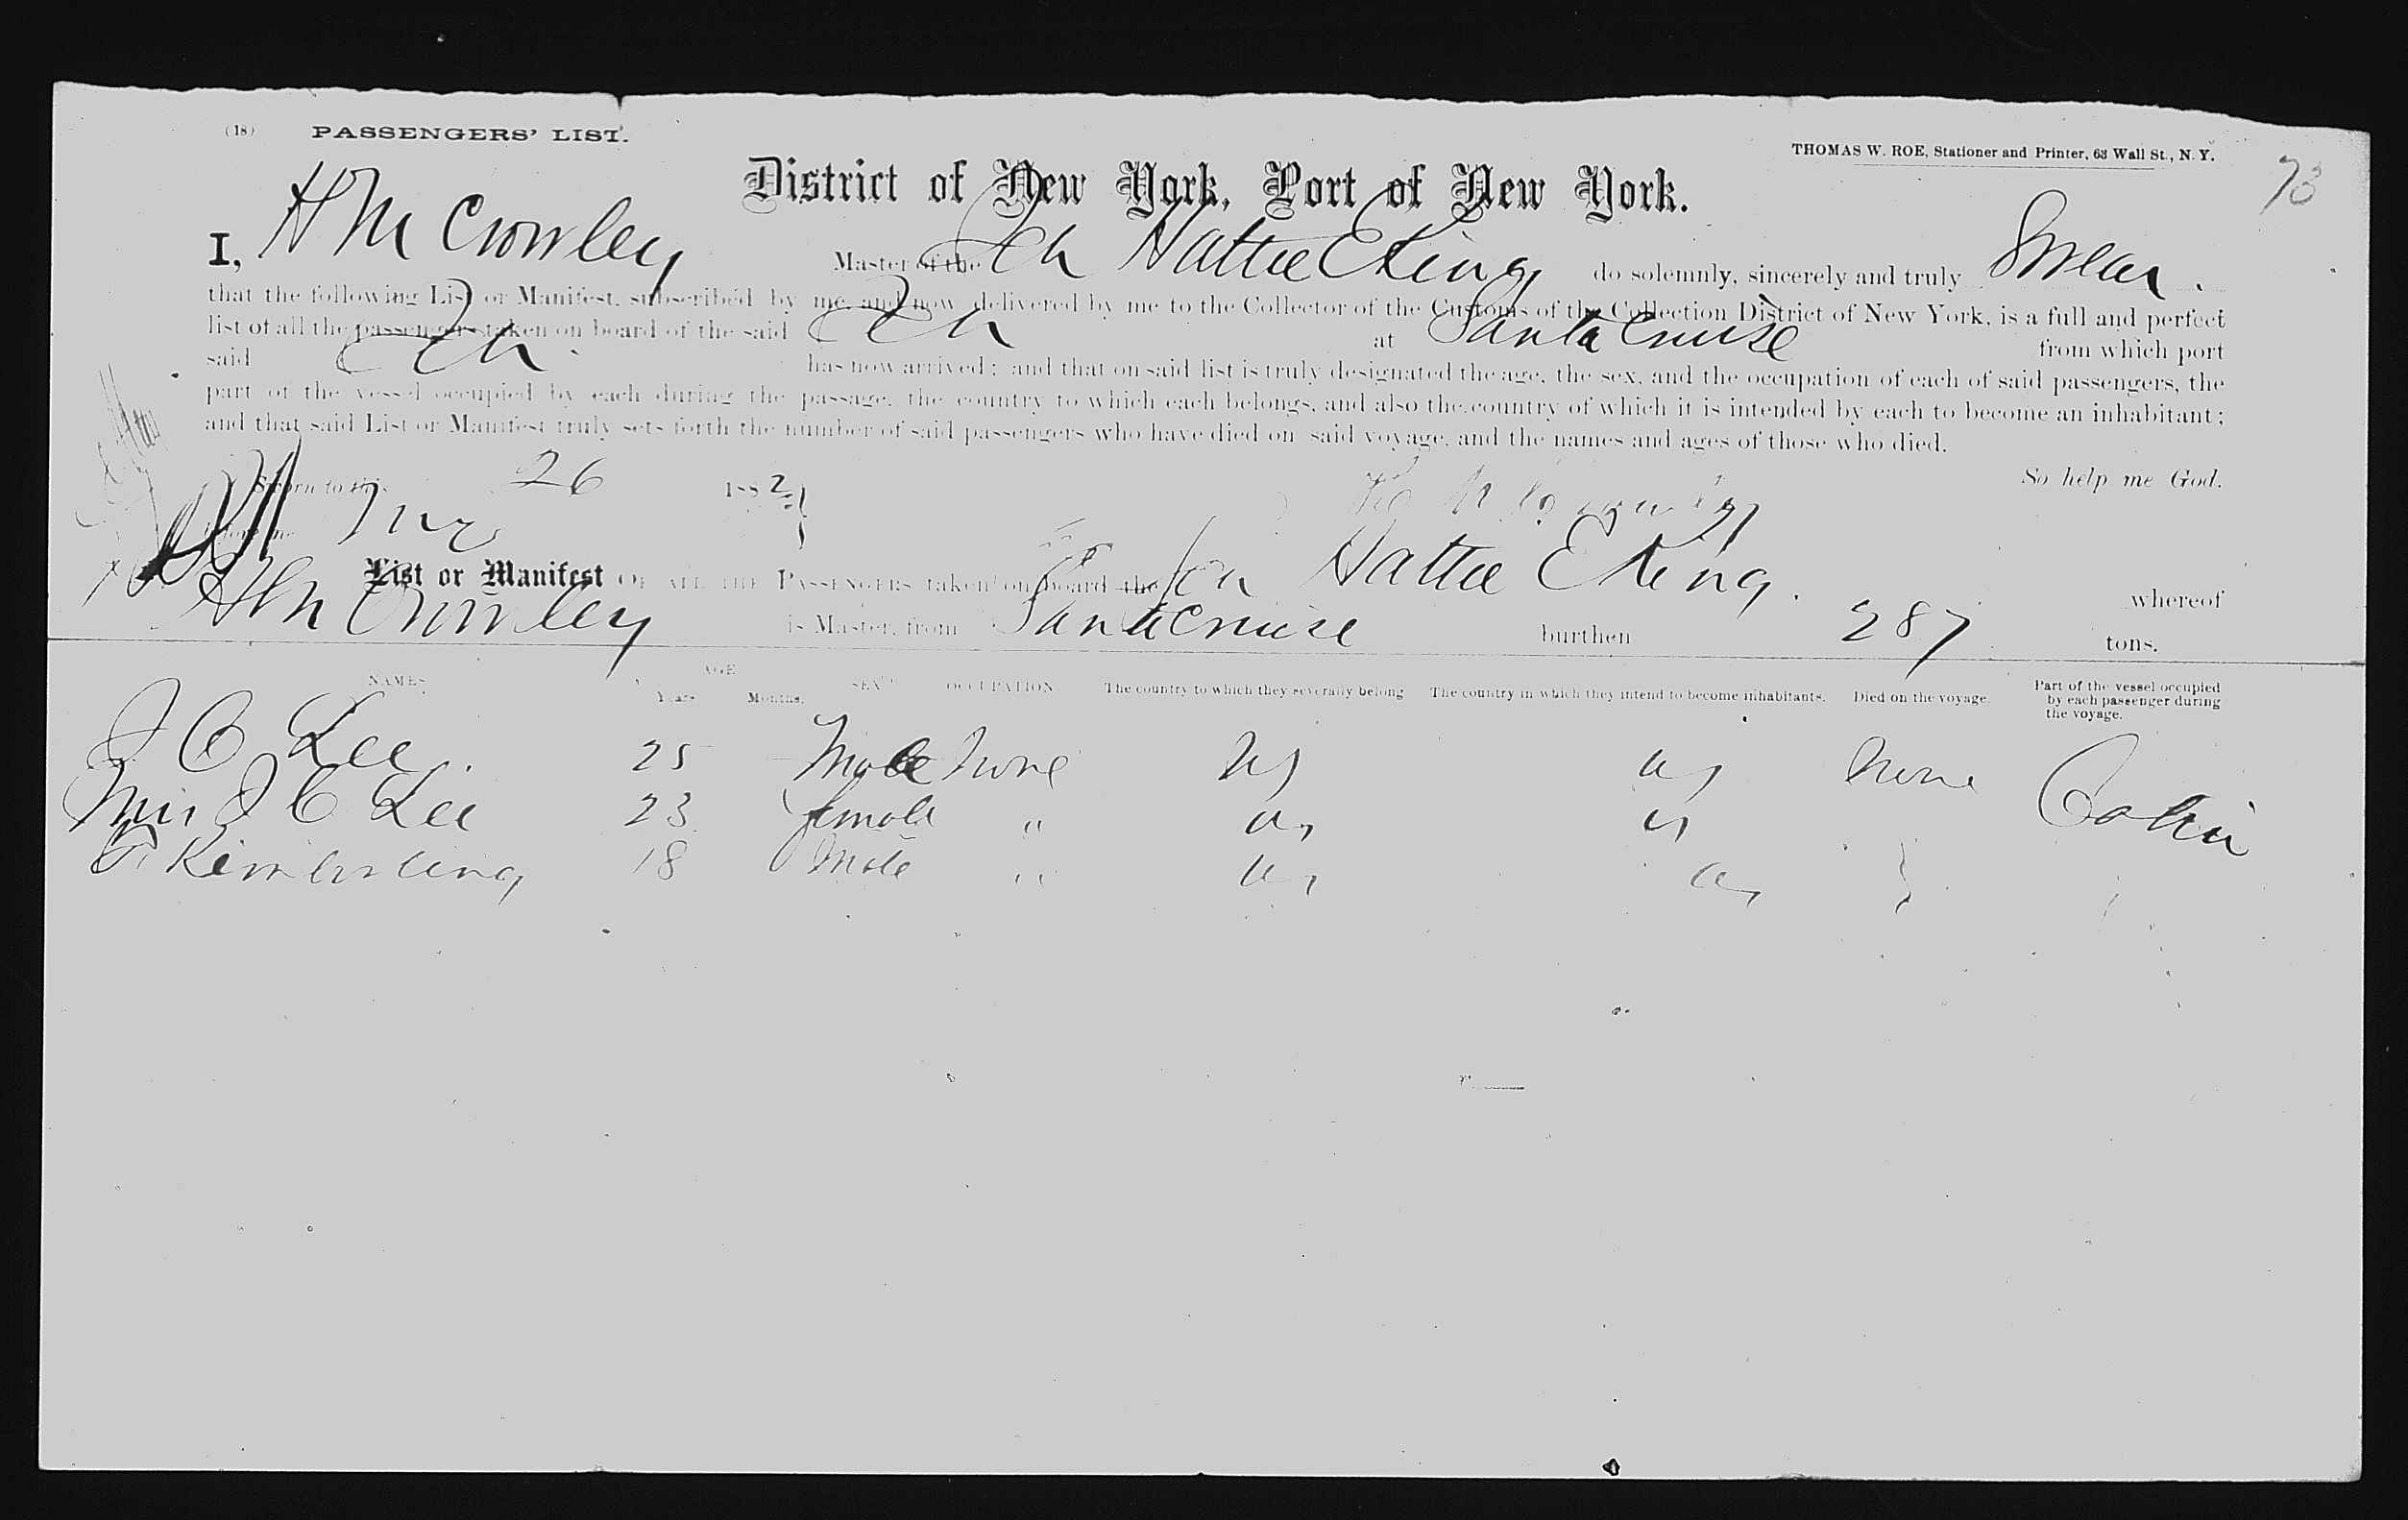 (18) PASSENGERS' LIST.
THOMAS W. ROE, Stationer and Printer, 63 Wall St., N. Y.
73
District of New York, Port of New York.
I, H M Crowley Master of the Sch Hattie E King do solemnly, sincerely and truly Swear.
that the following List or Manifest, subscribed by me, and now delivered by me to the Collector of the Customs of the Collection District of New York, is a full and perfect
list of all the passengers taken on board of the said Sch at Santa Cruise from which port
said Sch has now arrived; and that on said list is truly designated the age, the sex, and the occupation of each of said passengers, the
part of the vessel occupied by each during the passage, the country to which each belongs, and also the country of which it is intended by each to become an inhabitant;
and that said List or Manifest truly sets forth the number of said passengers who have died on said voyage, and the names and ages of those who died.
So help me God.
Sworn to this 26 1882
List or Manifest OF ALL THE PASSENGERS taken on board the Sch Hattie E King. whereof
H M Crowley is Master, from Santa Cruise burthen 287 tons.
NAMES AGE Years Months. SEX OCCUPATION The country to which they severally belong The country in which they intend to become inhabitants. Died on the voyage. Part of the vessel occupied by each passenger during the voyage.
J C Lee. 25 Male None US US None Cabin
Mrs J C Lee 23 female " US US
Kimberling 18 Male " US US